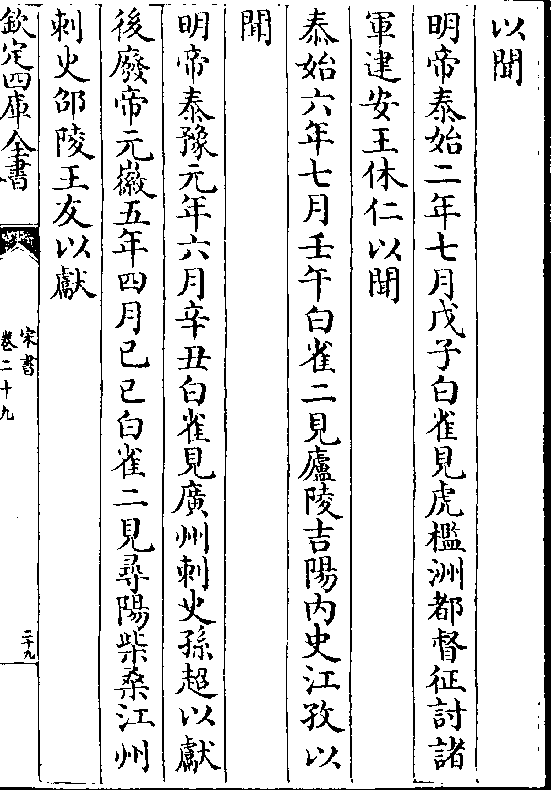 以聞
明帝泰始二年七月戊子白雀見虎檻洲都督征討諸
軍建安王休仁以聞
泰始六年七月壬午白雀二見廬陵吉陽内史江孜以
聞
明帝泰豫元年六月辛丑白雀見廣州刺史孫超以獻
後廢帝元徽五年四月己巳白雀二見尋陽柴桑江州
刺史邵陵王友以獻
欽定四庫全書
宋書
卷二十九
二十九